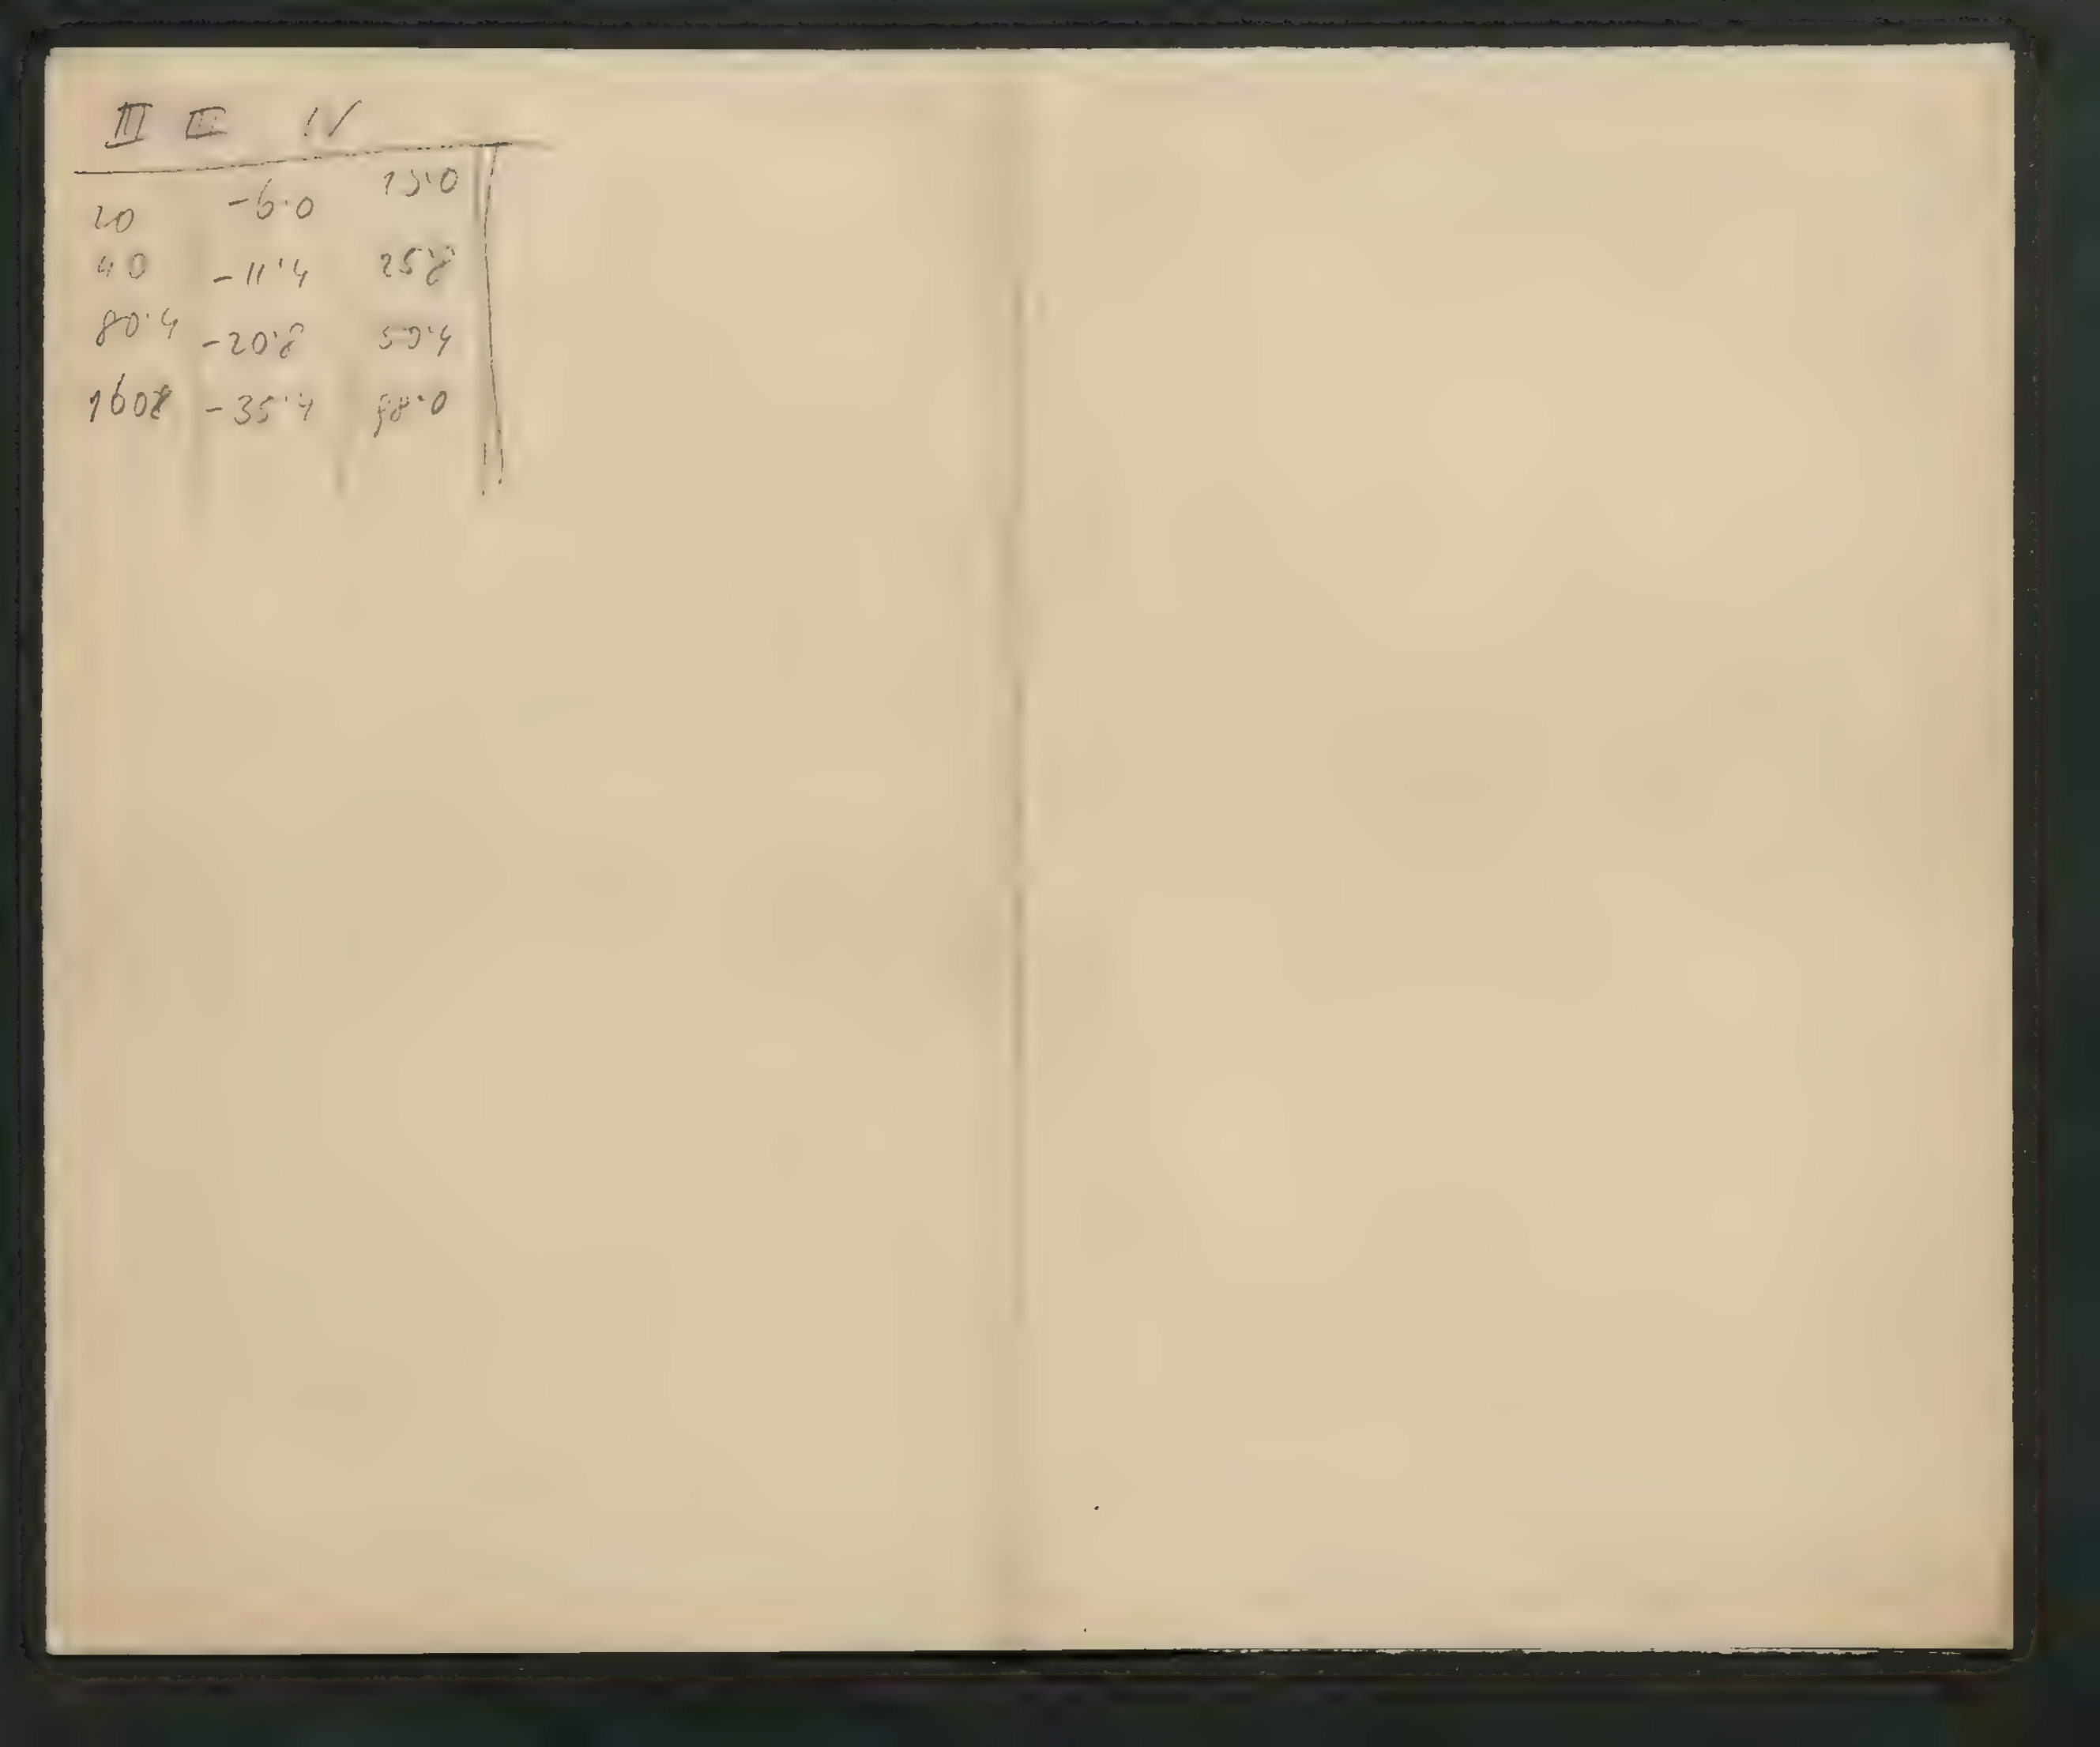 III III IV
20 -6·0 13·0
40 -11·4 25·8
80·4 -20·8 50·4
160·8 -35·4 98·0